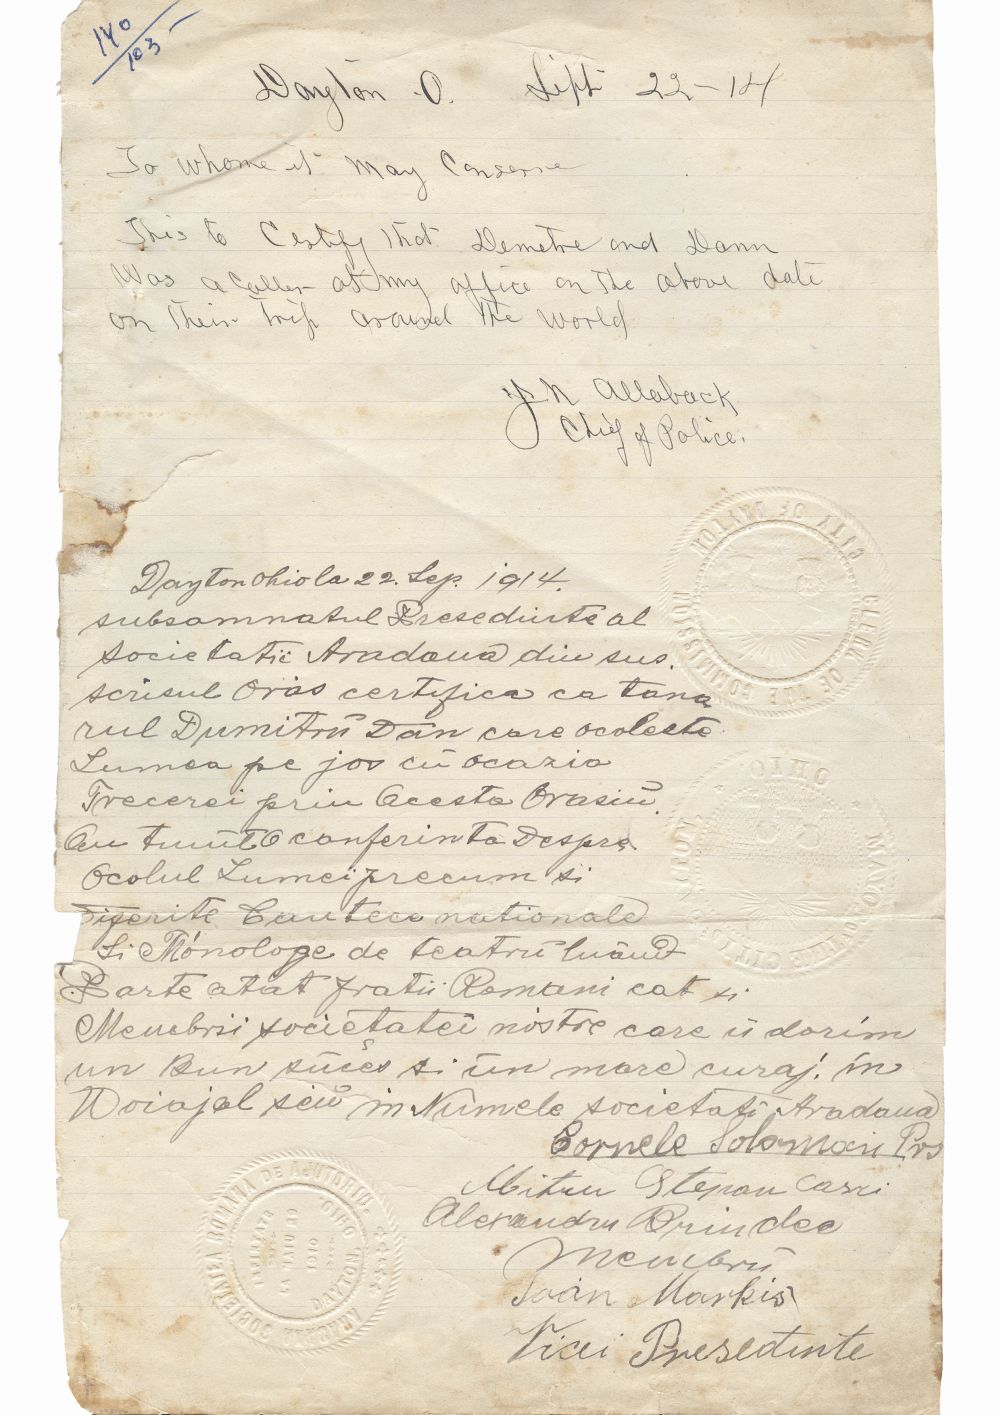 140
103 -
Dayton O. Sept 22-14
To whome it May Conserne
This to Cestify that Demetre and Dann
Was a Caller at my office on the above date
on their trip around the world
J N Allaback
Chief of Police.
CITY OF DAYTON
CLERK OF THE COMMISSION
Dayton Ohio la 22. Sep. 1914.
subsamnatul Presedinte al
societatii Aradana din sus.
scrisul Oras certifica ca tana
rul Dumitru Dan care ocoleste
Lumea pe jos cu ocazia
Trecerei prin Acesta Orasiu.
Au tinut O conferinta Despre
Ocolul Lumei precum si
Diferite Cantece nationale
Si Monologe de teatru luand
Parte atat fratii Romani cat si
Membrii societatei nostre care ii dorim
un Bun suces si un mare curaj. in
Voiajal seiu in Numele societati Aradana
OHIO
Cornele Soloman Prs
Mitru Stepan Casri
Alexandru Brindee
Membrii
Ioan Markis
Vici Presedinte
SOCIETATEA ROMANA DE AJUTORIU
ARADANA
INFIINTATA
LA MAIU 29
1910
DAYTON,
OHIO